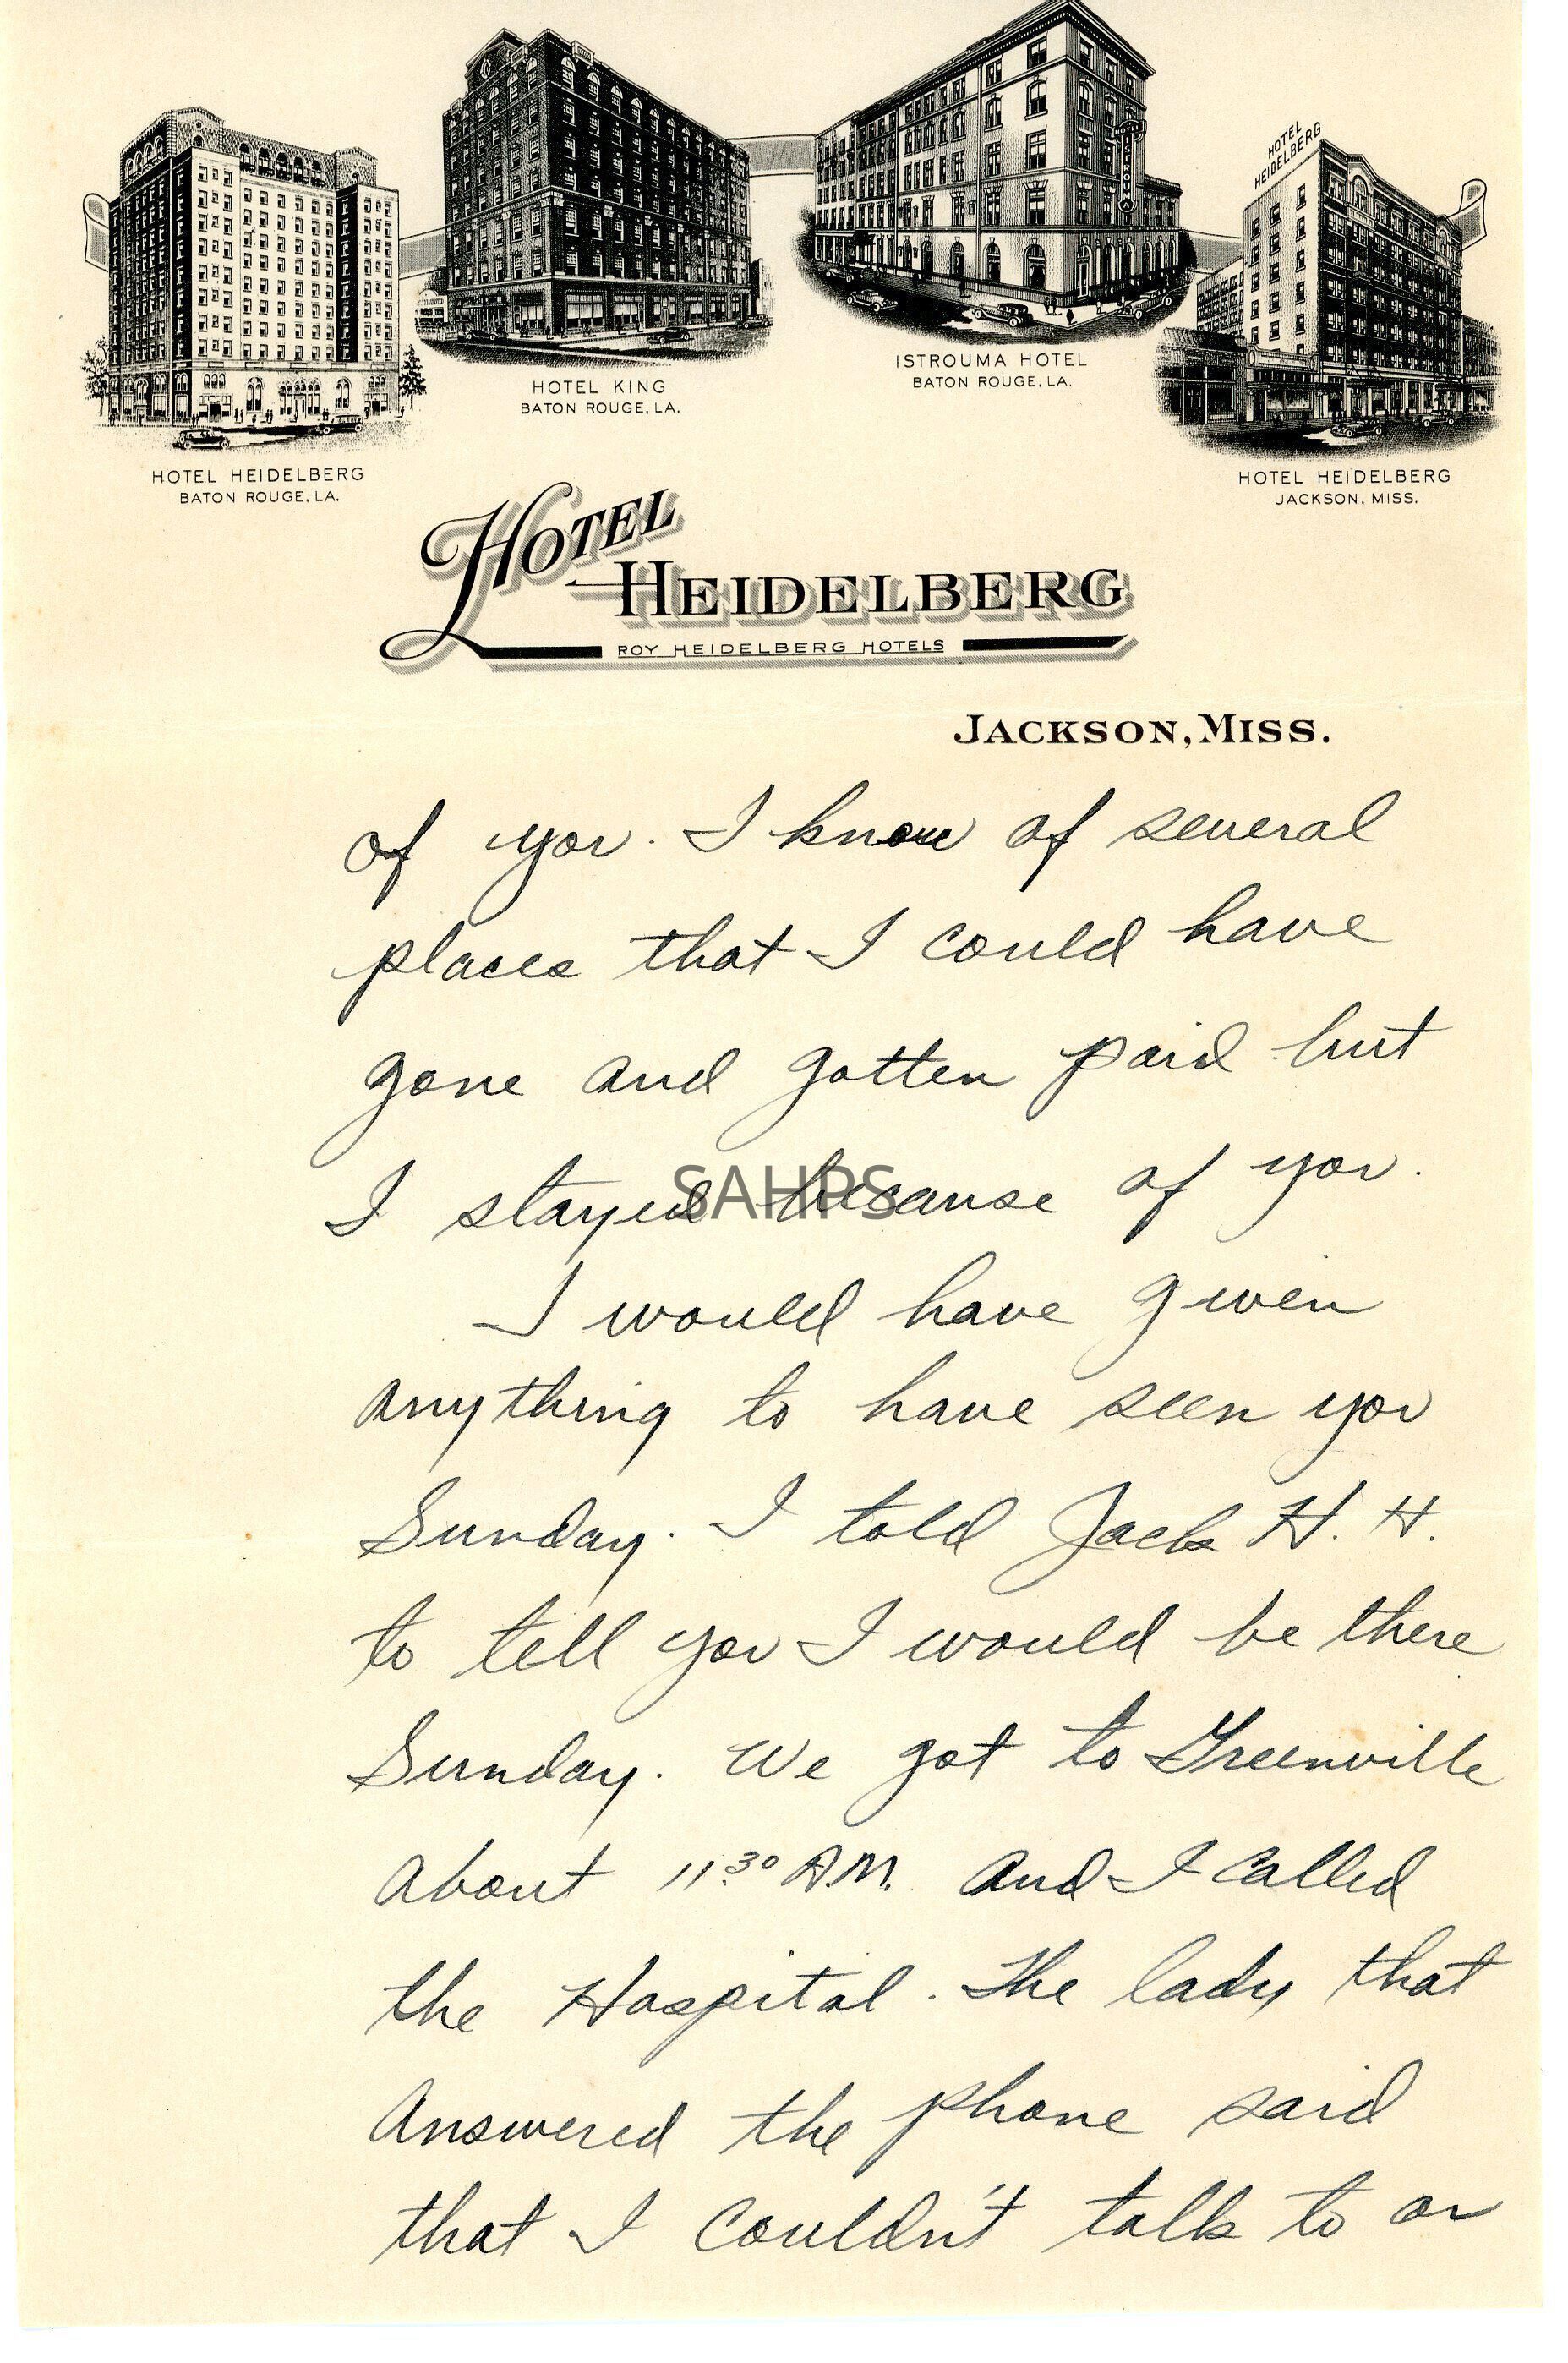 HOTEL HEIDELBERG
HOTEL HEIDELBERG
BATON ROUGE, LA.
HOTEL KING
BATON ROUGE, LA.
ISTROUMA HOTEL
BATON ROUGE, LA.
HOTEL HEIDELBERG
JACKSON, MISS.
HOTEL
HEIDELBERG
ROY HEIDELBERG HOTELS
JACKSON, MISS.
of you. I know of several
places that I could have
gone and gotten paid but
I stayed because of you.
SAHPS
I would have given
anything to have seen you
Sunday. I told Jack H. H.
to tell you I would be there
Sunday. We got to Greenville
about 11:30 A.M. and I called
the Hospital. The lady that
answered the phone said
that I couldn't talk to or